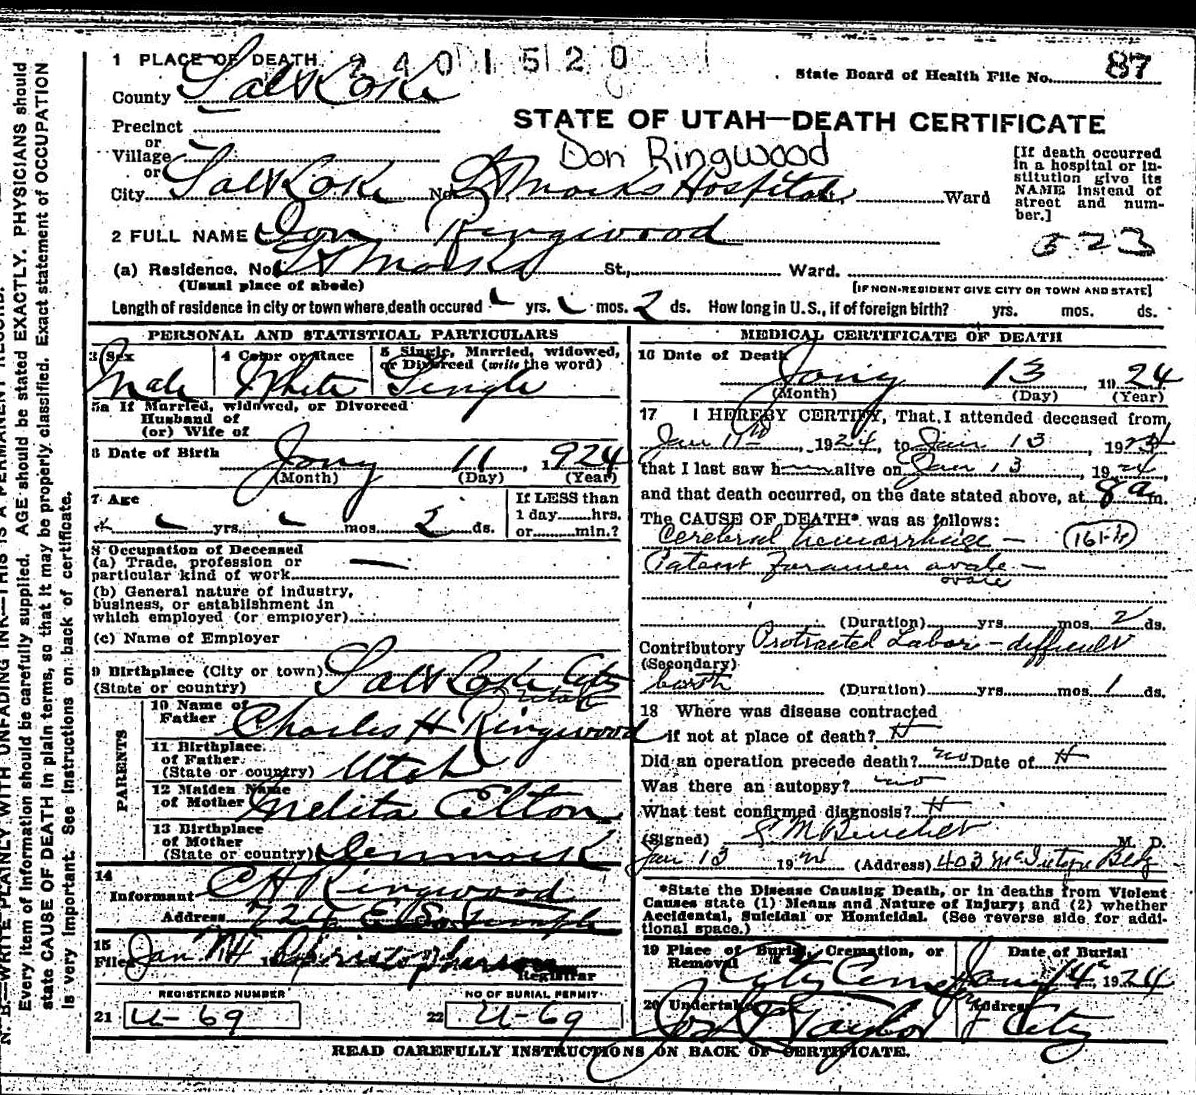 1 PLACE OF DEATH 2401520
State Board of Health File No. 87
County Salt Lake
STATE OF UTAH—DEATH CERTIFICATE
Precinct
or
Village
Don Ringwood
or
City Salt Lake No. St Marks Hospital Ward
[If death occurred
in a hospital or in-
stitution give its
NAME instead of
street and num-
ber.]
2 FULL NAME Don Ringwood
523
(a) Residence. No. St Marks St., Ward.
(Usual place of abode)
[IF NON-RESIDENT GIVE CITY OR TOWN AND STATE]
Length of residence in city or town where death occured yrs. mos. 2 ds. How long in U.S., if of foreign birth? yrs. mos. ds.
PERSONAL AND STATISTICAL PARTICULARS
3 Sex 4 Color or Race 5 Single, Married, widowed,
or Divorced (write the word)
Male White Single
5a If Married, widowed, or Divorced
Husband of
(or) Wife of
6 Date of Birth Jany 11, 1924
(Month) (Day) (Year)
7 Age yrs. mos. 2 ds.
If LESS than
1 day hrs.
or min.?
8 Occupation of Deceased
(a) Trade, profession or
particular kind of work —
(b) General nature of industry,
business, or establishment in
which employed (or employer)
(c) Name of Employer
9 Birthplace (City or town) Salt Lake City
(State or country) Utah
PARENTS
10 Name of
Father Charles H Ringwood
11 Birthplace
of Father
(State or country) Utah
12 Maiden Name
of Mother Melita Elton
13 Birthplace
of Mother
(State or country) Denmark
14
Informant C H Ringwood
Address 726 E So Temple
15
Filed Jan 14 Christopherson
Registrar
REGISTERED NUMBER NO OF BURIAL PERMIT
21 U-69 22 U-69
MEDICAL CERTIFICATE OF DEATH
16 Date of Death
Jany 13, 1924
(Month) (Day) (Year)
17 I HEREBY CERTIFY, That I attended deceased from
Jan 11th, 1924, to Jan 13 1924
that I last saw h alive on Jan 13 1924,
and that death occurred, on the date stated above, at 8 a m.
The CAUSE OF DEATH* was as follows:
Cerebral hemorrhage —
Patent Foramen ovale —
ovale
(Duration) yrs. mos. 2 ds.
Contributory Protracted Labor — difficult
(Secondary)
birth (Duration) yrs. mos. 1 ds.
18 Where was disease contracted
if not at place of death?
Did an operation precede death? no Date of
Was there an autopsy? no
What test confirmed diagnosis?
(Signed) M. D.
Jan 13 1924 (Address) 403 McIntyre Bldg
*State the Disease Causing Death, or in deaths from Violent
Causes state (1) Means and Nature of Injury; and (2) whether
Accidental, Suicidal or Homicidal. (See reverse side for addi-
tional space.)
19 Place of Burial, Cremation, or Date of Burial
Removal City Cemetery Jany 14, 1924
20 Undertaker Address
Jos Taylor City
READ CAREFULLY INSTRUCTIONS ON BACK OF CERTIFICATE.
Every item of information should be carefully supplied. AGE should be stated EXACTLY. PHYSICIANS should
state CAUSE OF DEATH in plain terms, so that it may be properly classified. Exact statement of OCCUPATION
is very important. See instructions on back of certificate.